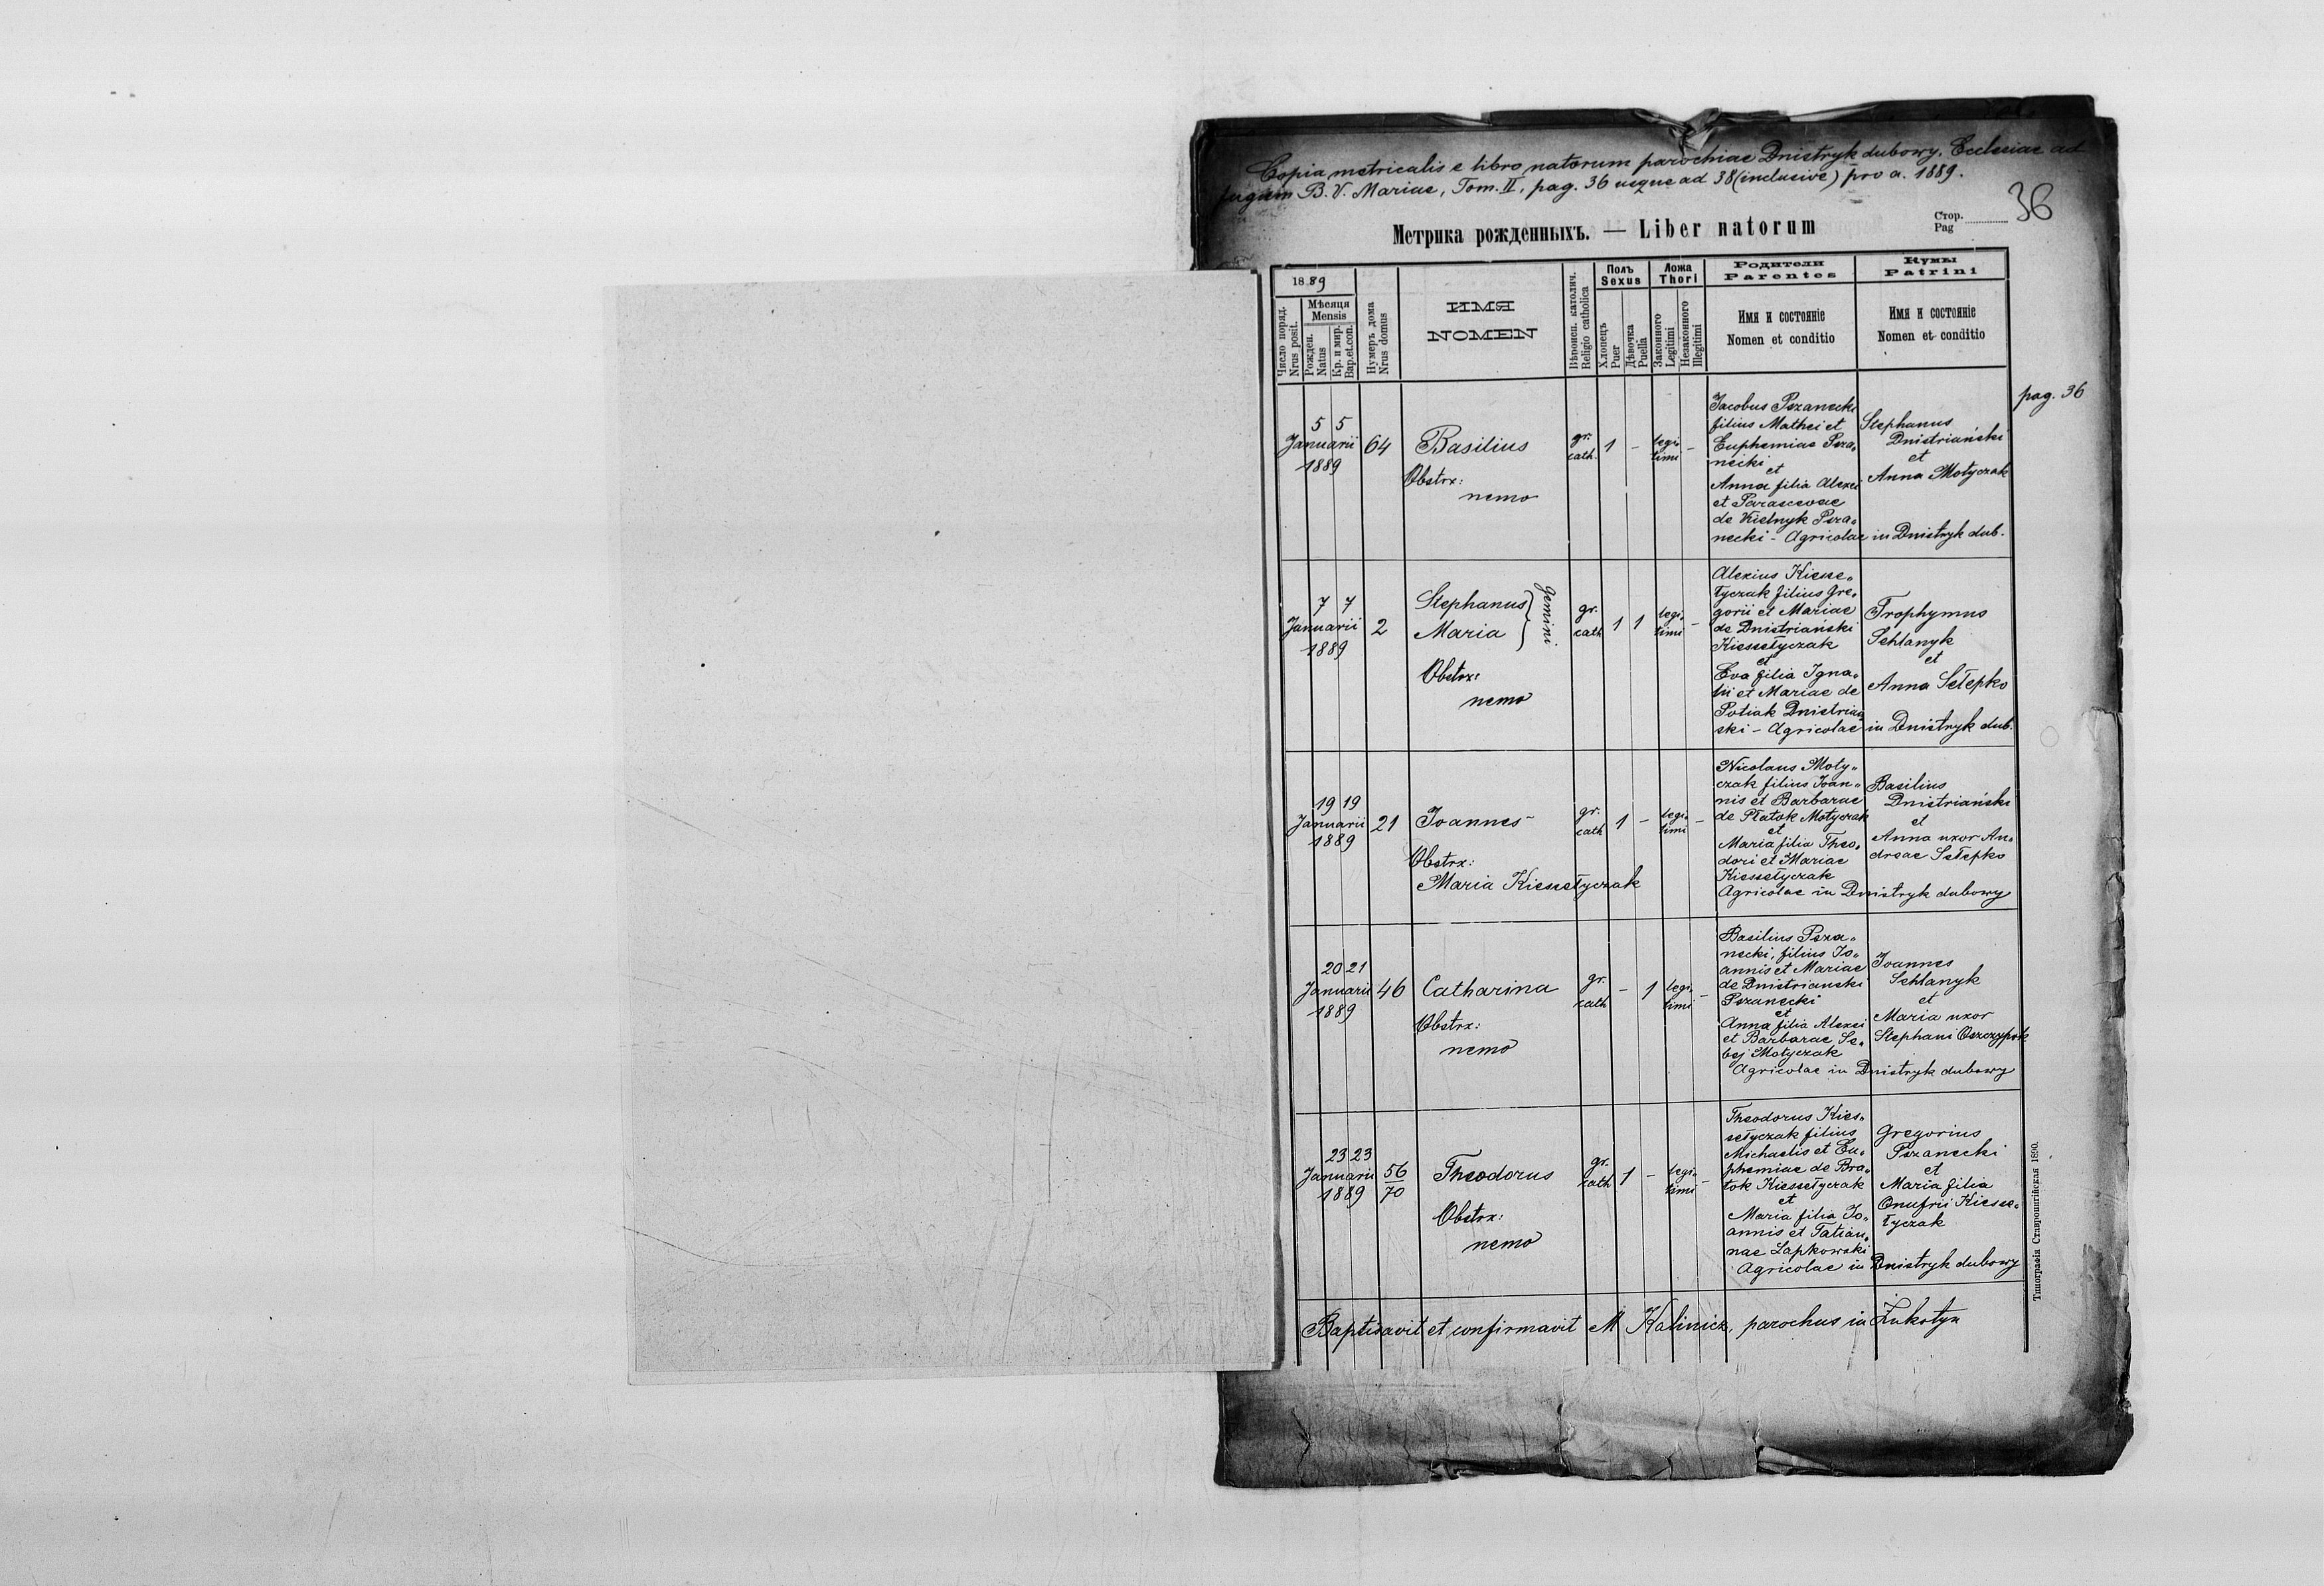 Copia metricalis e libro natorum parochiae Dnistryk dubowy. Ecclesiae ad
fugam B. V. Mariae, Tom. II, pag. 36 usque ad 38 (inclusive) pro a. 1889.
Метрика рожденныхъ. — Liber natorum
Стор.
Pag
36
1889
Число поряд.
Nrus posit.
Мѣсяця
Mensis
Рожден.
Natus
Кр. и мир.
Bap.et.con.
Нумеръ дома
Nrus domus
ИМЯ
NOMEN
Вѣроисп. католич.
Religio catholica
Полъ
Sexus
Хлопецъ
Puer
Дѣвочка
Puella
Ложа
Thori
Законного
Legitimi
Незаконного
Illegitimi
Родители
Parentes
Имя и состояніе
Nomen et conditio
Кумы
Patrini
Имя и состояніе
Nomen et conditio
pag. 36
5 5
Januarii
1889
64
Basilius
Obstrx:
nemo
gr.
cath.
1
-
legi
timi
-
Jacobus Pszanecki
filius Mathei et
Euphemiae Psza„
necki
et
Anna filia Alexii
et Parascevae
de Kielnyk Psza„
necki - Agricolae in Dnistryk dub.
Stephanus
Dnistriański
et
Anna Motyczak
7 7
Januarii
1889
2
Stephanus
Maria
Gemini
Obstrx:
nemo
gr.
cath
1
1
legi„
timi
-
Alexius Kiesse„
łyczak filius Gre„
gorii et Mariae
de Dnistriański
Kiessełyczak
et
Eva filia Igna„
tii et Mariae de
Potiak Dnistriań
ski - Agricolae in Dnistryk dub.
Trophymus
Sehlanyk
et
Anna Sełepko
19 19
Januarii
1889
21
Joannes
Obstrx:
Maria Kiessełyczak
gr.
cath
1
-
legi„
timi
-
Nicolaus Moty„
czak filius Joan„
nis et Barbarae
de Płatok Motyczak
et
Maria filia Theo„
dori et Mariae
Kiessełyczak
Agricolae in Dnistryk dubowy
Basilius
Dnistriański
et
Anna uxor An„
dreae Sełepko
20 21
Januarii
1889
46
Catharina
Obstrx:
nemo
gr.
cath
-
1
legi„
timi
-
Basilius Psza„
necki, filius Jo„
annis et Mariae
de Dnistrianski
Pszanecki
et
Anna filia Alexii
et Barbarae Se„
bej Motyczak
Agricolae in Dnistryk dubowy
Joannes
Sehlanyk
et
Maria uxor
Stephani Oszczypok
23 23
Januarii
1889
56
70
Theodorus
Obstrx:
nemo
gr.
cath
1
-
legi„
timi
-
Theodorus Kies„
sełyczak filius
Michaelis et Eu„
phemiae de Bra„
tok Kiessełyczak
et
Maria filia Jo„
annis et Tatian„
nae Lapkowski
Agricolae in Dnistryk dubowy
Gregorius
Pszanecki
et
Maria filia
Onufrii Kiesse„
łyczak
Baptisavit et confirmavit M Kalinicz, parochus in Żukotyn
Типографія Ставропигійская 1890.